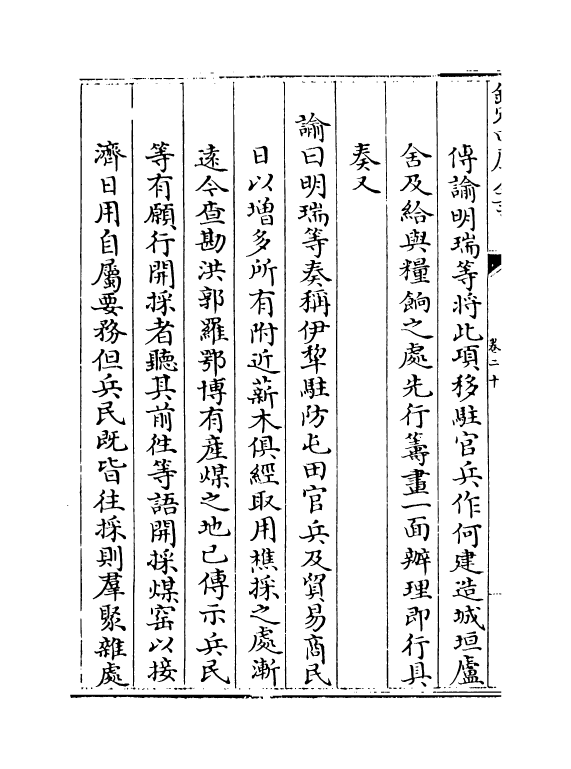 傳諭明瑞等將此項移駐官兵作何建造城垣廬
舍及給與糧餉之處先行籌畫一面辦理即行具
奏又
諭曰明瑞等奏稱伊犂駐防屯田官兵及貿易商民
日以增多所有附近薪木俱經取用樵採之處漸
遠令查勘洪郭羅鄂博有產煤之地已傳示兵民
等有願行開採者聽其前徃等語開採煤窑以接
濟日用自屬要務但兵民既皆往採則羣聚雜處
卷二十